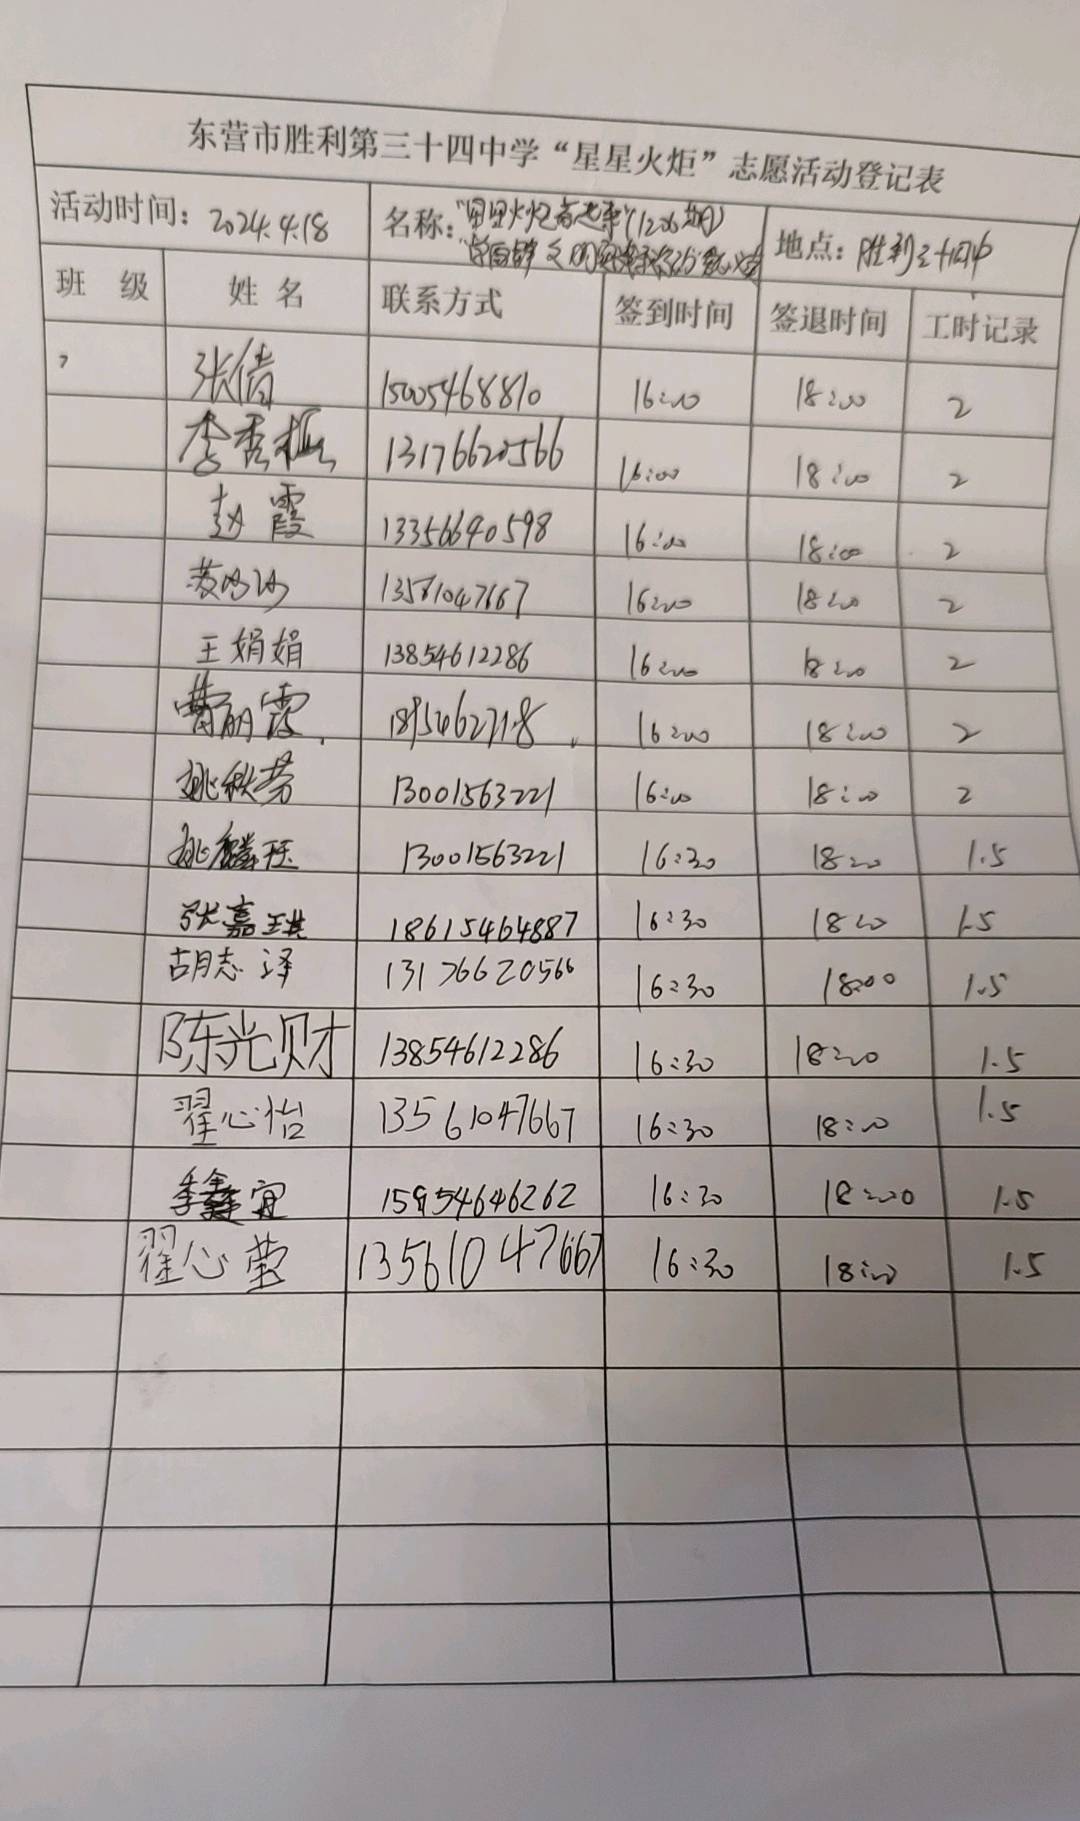 东营市胜利第三十四中学“星星火炬”志愿活动登记表
活动时间：2024.4.18 名称：“星星火炬 (1206期) 地点：胜利三十四中
班 级 姓 名 联系方式 签到时间 签退时间 工时记录
张倩 15005468810 16:00 18:00 2
李秀 13176620566 16:00 18:00 2
赵霞 13356640598 16:00 18:00 2
13561047667 16:00 18:00 2
王娟娟 13854612286 16:00 18:00 2
曹丽霞 16:00 18:00 2
姚秋芳 13001563221 16:00 18:00 2
姚麟珏 13001563221 16:30 18:00 1.5
张嘉琪 18615464887 16:30 18:00 1.5
胡志泽 13176620566 16:30 18:00 1.5
陈光财 13854612286 16:30 18:00 1.5
翟心怡 13561047667 16:30 18:00 1.5
李鑫宜 15954646262 16:30 18:00 1.5
翟心莹 13561047667 16:30 18:00 1.5